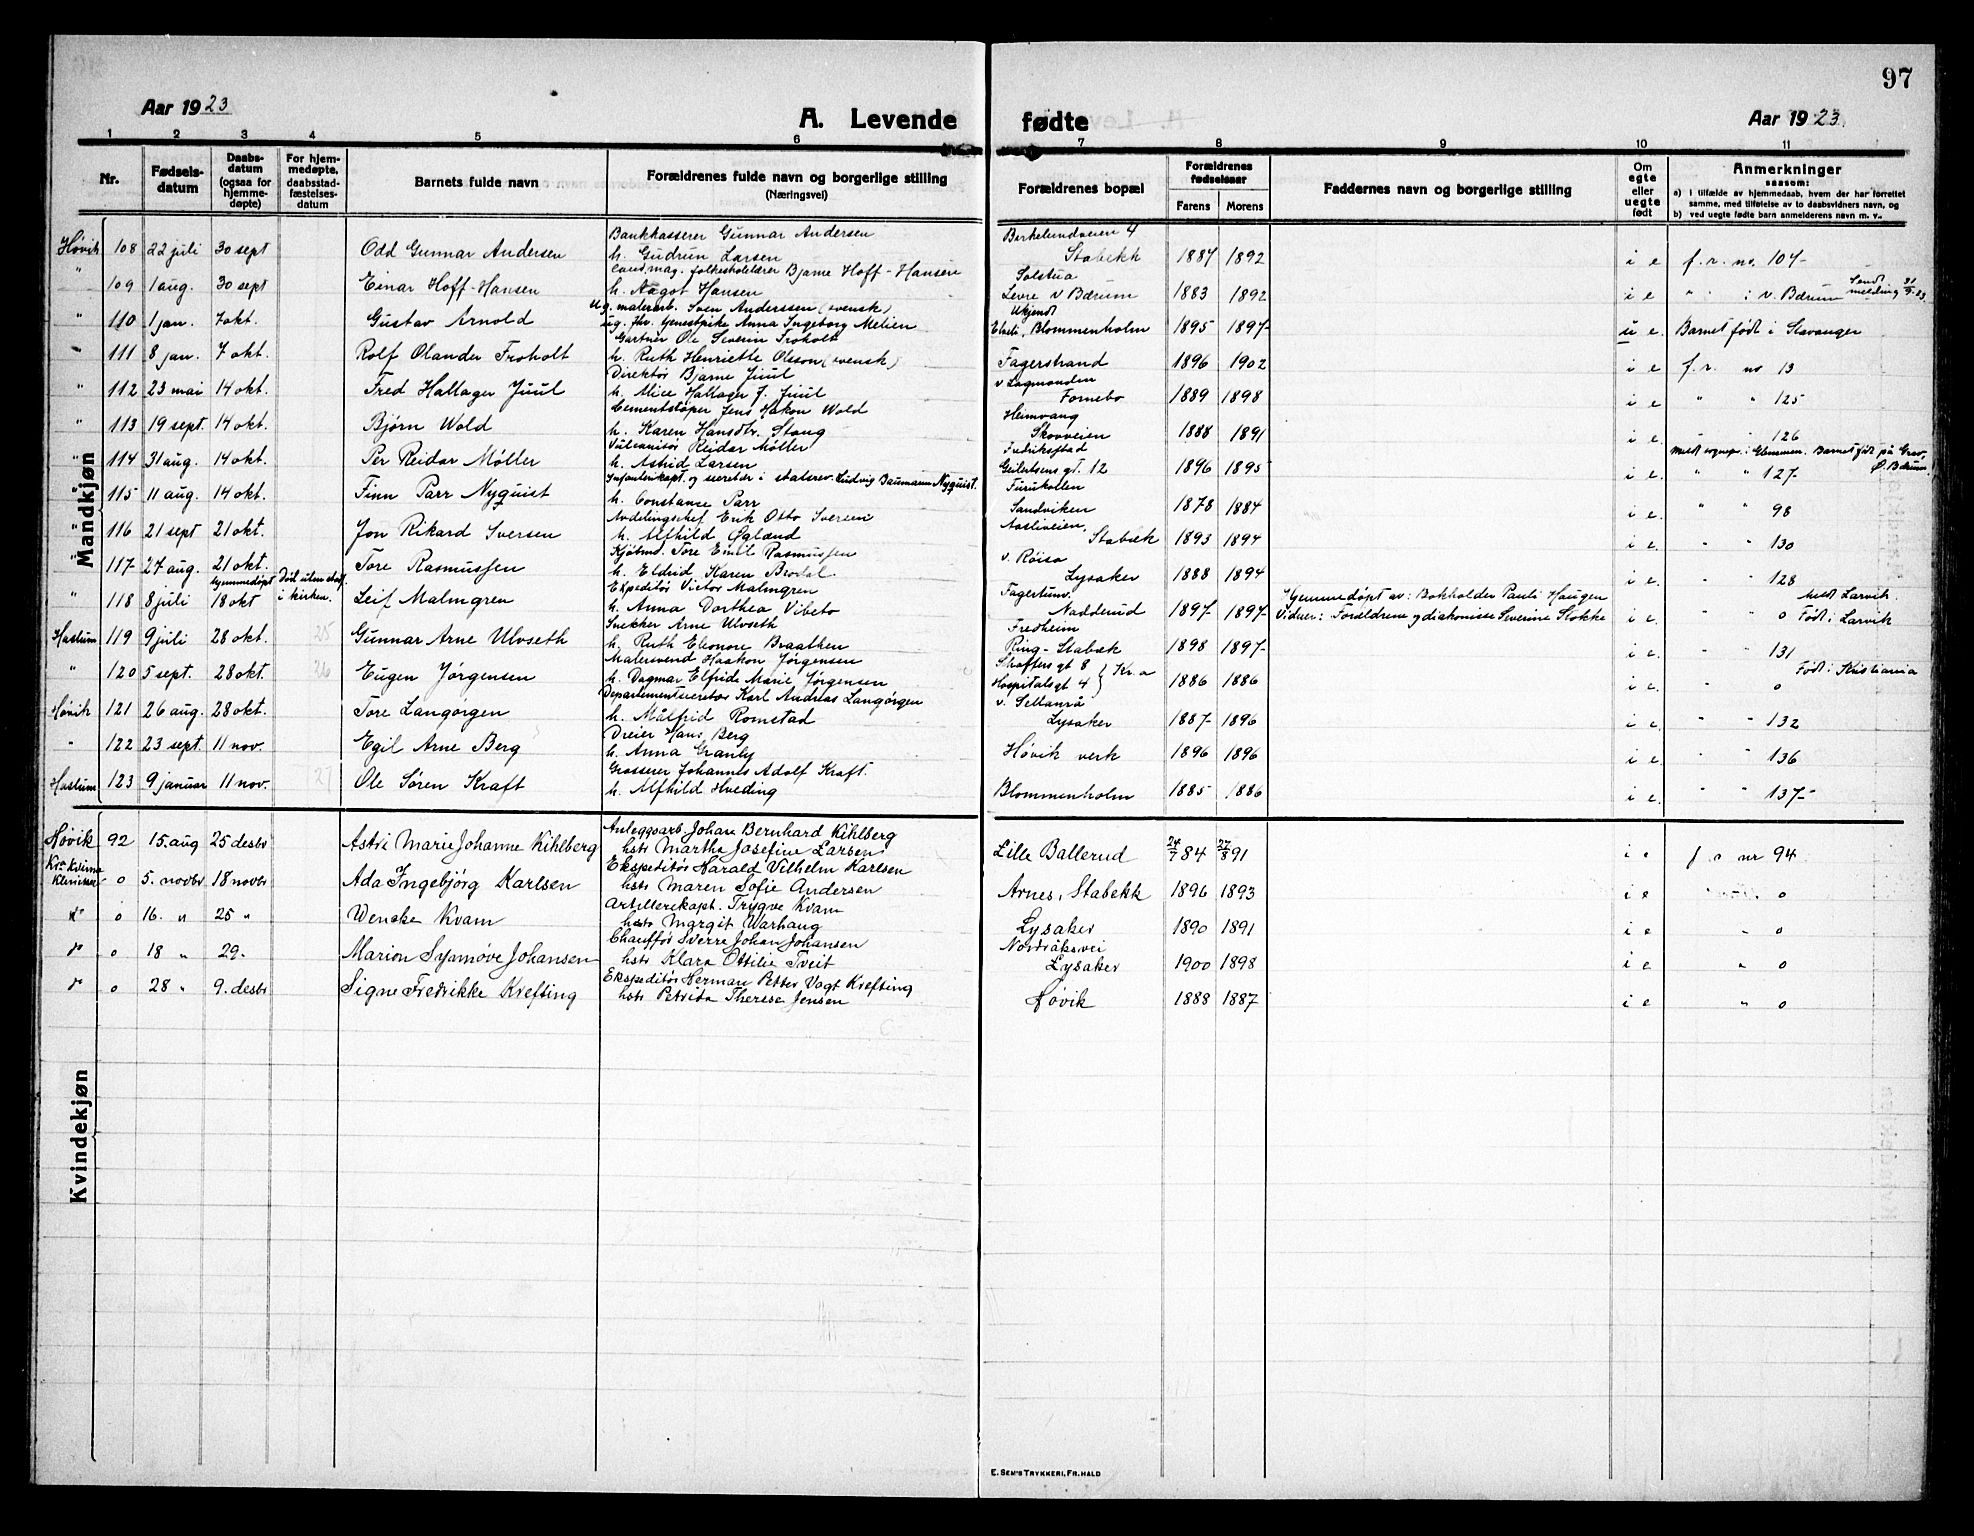 97
Aar 1923
A. Levende fødte
Aar 1923.
1 2 3 4 5 6 7 8 9 10 11
Nr.
Fødselsdatum
Daabsdatum (ogsaa for hjemmedøpte)
For hjemmedøpte, daabsstadfæstelsesdatum
Barnets fulde navn
Forældrenes fulde navn og borgerlige stilling (Næringsvei)
Forældrenes bopæl
Forældrenes fødselsaar
Farens Morens
Faddernes navn og borgerlige stilling
Om egte eller uegte født
Anmerkninger
saasom:
a) I tilfælde av hjemmedaab, hvem der har forrettet samme, med tilføielse av to daabsvidners navn, og
b) ved uegte fødte barn anmelderens navn m. v.
Mandkjøn
Høvik 108 22 juli 30 sept Odd Gunnar Andersen Bankkasserer Gunnar Andersen
h. Gudrun Larsen Birkelundveien 4
Stabekk 1887 1892 i e f. r. no. 104
" 109 1 aug. 30 sept Einar Hoff-Hansen Cand.mag. folkeskolelærer Bjarne Hoff-Hansen
h. Aagot Hansen Solstua
Levre v Bærum 1883 1892 i e " " : v. Bærum Send melding
" 110 1 jan. 7 okt. Gustav Arnold Ug. malerarb. Sven Anderssen (svensk)
ug. fhv. tjenestpike Anna Ingeborg Melien Ukjendt
Blommenholm 1895 1897 u e. Barnet født i Stavanger
" 111 8 jan. 7 okt. Rolf Olander Froholt Gartner Ole Severin Froholt
h. Ruth Henriette Olsson (svensk) Fagerstrand 1896 1902 i e f. r. no 13
" 112 23 mai 14 okt. Fred Hallager Juul Direktør Bjarne Juul
h. Alice Hallager J. Juul v Lagmanden
Fornebo 1889 1898 i e " " 125
" 113 19 sept. 14 okt. Bjørn Wold Cementstøper Jens Hakon Wold
h. Karen Hansdtr. Stang Heimvang
Skovveien 1888 1891 i e. " " 126
" 114 31 aug. 14 okt. Per Reidar Møller Vulcanisør Reidar Møller
h. Astrid Larsen Fredrikstad
Geilertsens gt. 12 1896 1895 i e. Meldt sognepr. i Glemmen. Barnet født på Grav, Ø. Bærum
" " 127
" 115 11 aug. 14 okt. Finn Parr Nyquist Infanterikapt. og secretær i statsrev. Ludvig Baumann Nyquist.
h. Constance Parr Furukollen
Sandviken 1878 1884 i e. " " 98
" 116 21 sept 21 okt. Jon Rikard Iversen Avdelingschef Erik Otto Iversen
h. Alfhild Øglænd Aasliveien,
Stabæk 1893 1894 i e. " " 130
" 117 27 aug. 21 okt. Tore Rasmussen Kjøbmd. Tore Emil Rasmussen
h. Eldrid Karen Brodal v. Røisa
Lysaker 1888 1894 i e. " " 128
" 118 8 juli hjemmedøpt 18 okt Død uten stadf. i kirken. Leif Malmgren Expeditør Victor Malmgren
h. Anna Dorthea Vibeto Fagertun
Nadderud 1897 1897 Hjemmedøpt av: Bokholder Pauli Haugen
Vidner: Foreldrene og diakonisse Severine Stokke i e. Meldt Larvik.
" " 0 Født i Larvik
Haslum 119 9 juli 28 okt. 25 Gunnar Arne Ulvseth Snekker Arne Ulvseth
h. Ruth Eleonore Braathen Fredheim
Ring - Stabæk 1898 1897 i e. " " 131
" 120 5 sept. 28 okt. 26 Eugen Jørgensen Malersvend Haakon Jørgensen
h. Dagmar Elfride Marie Jørgensen Schaffers gt 8
Hospitalsgt 4 } Kr.a 1886 1886 i e. Født i Kristiania
" " 0
Høvik 121 26 aug. 28 okt. Tore Langørgen Departementsecretær Karl Andreas Langørgen
h. Målfrid Romstad v.
Lysaker 1887 1896 i e. " " 132
" 122 23 sept. 11 nov. Egil Arne Berg Dreier Hans Berg
h. Anna Granly Høvik verk 1896 1896 i e. " " 136
Haslum 123 9 januar 11 nov. 27 Ole Søren Kraft Grosserer Johannes Adolf Kraft.
h. Alfhild Hveding Blommenholm 1885 1886 i e. " " 137
Kvindekjøn
Høvik 92 15. aug 25 desbr Astri Marie Johanne Kihlberg Anleggsarb Johan Bernhard Kihlberg
hstr Martha Josefine Larsen Lille Ballerud 24/7 84 27/8 91 i e f r nr 94
Kr.a Kvinneklinikk 0 5. novbr 18 novbr Ada Ingebjørg Karlsen Ekspeditør Harald Vilhelm Karlsen
hstr Maren Sofie Andersen Arnes, Stabekk 1896 1893 i e 0
do 0 16. " 25 " Wencke Kvam Artillerikapt. Trygve Kvam
hstr Margit Warhaug Lysaker 1890 1891 i e " 0
do 0 18 " 29. Marion Synnøve Johansen Chauffør Sverre Johan Johansen
hstr Klara Ottilie Tveit Nordråksvei
Lysaker 1900 1898 i e " 0
do 0 28 " 9. desbr Signe Fredrikke Krefting Ekspeditør Herman Petter Vogt Krefting
hstr Petrida Therese Jensen Høvik 1888 1887 i e " 0
E. SEM'S TRYKKERI, FR.HALD